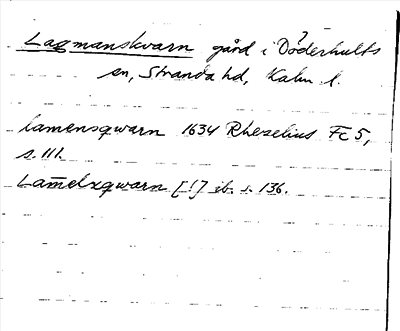 Lagmanskvarn gård i Döderhults
?
sn, Stranda hd, Kalm. l.
lamensqwarn 1634 Rhezelius Fc 5,
s. 111.
Lam̅elxqwarn [!] ib. s. 136.